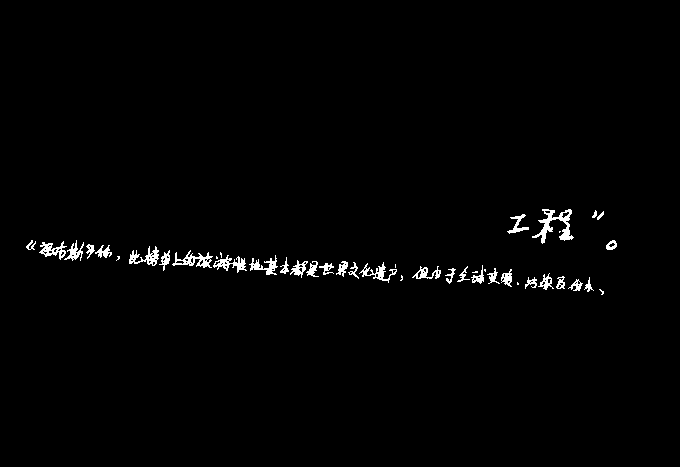 工程”。
《福布斯》称，此榜单上的旅游胜地基本都是世界文化遗产，但由于全球变暖、污染及伐木、